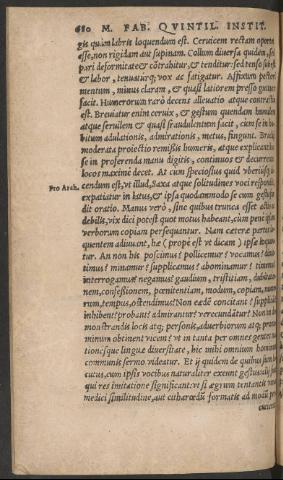 680 M. FAB. QVINTIL. INSTIT.
gis quàm labris loquendum est. Ceruicem rectam oportet
esse, non rigidam aut supinam. Collum diuersa quidem, sed
pari deformitate & cōtrahitur, & tenditur: sed tenso subest
& labor, tenuaturq; vox ac fatigatur. Affixum pectori
mentum, minus claram, & quasi latiorem presso gutture
facit. Humerorum rarò decens alleuatio atque contractio
est. Breuiatur enim ceruix, & gestum quendam humilem
atque seruilem & quasi fraudulentum facit, cùm se in ha-
bitum adulationis, admirationis, metus, fingunt. Brachij
moderata proiectio remissis humeris, atque explicantibus
se in proferenda manu digitis, continuos & decurrentes
locos maximè decet. At cum speciosius quid vberiusq; di-
Pro Arch.
cendum est, vt illud, Saxa atque solitudines voci respondent,
expatiatur in latus, & ipsa quodammodo se cum gestu fun-
dit oratio. Manus verò, sine quibus trunca esset actio ac
debilis, vix dici potest quot motus habeant, cùm penè ipsam
verborum copiam persequantur. Nam cæteræ partes lo-
quentem adiuuant, hæ (propè est vt dicam) ipsæ loquun-
tur. An non his poscimus? pollicemur? vocamus? dimit-
timus? minamur? supplicamus? abominamur? timemus?
interrogamus? negamus? gaudium, tristitiam, dubitatio-
nem, confessionem, pœnitentiam, modum, copiam, nume-
rum, tempus, ostendimus? Non eædē concitant? supplicāt?
inhibent? probant? admirantur? verecundātur? Non in de-
monstrandis locis atq; personis, aduerbiorum atq; prono-
minum obtinent vicem? vt in tanta per omnes gentes na-
tionesque linguæ diuersitate, hic mihi omnium hominum
communis sermo videatur. Et ij quidem de quibus sum lo-
cutus, cum ipsis vocibus naturaliter exeunt gestus: alij sunt
qui res imitatione significant: vt si ægrum tentantis venas
medici similitudine, aut citharœdi formatis ad modum per-